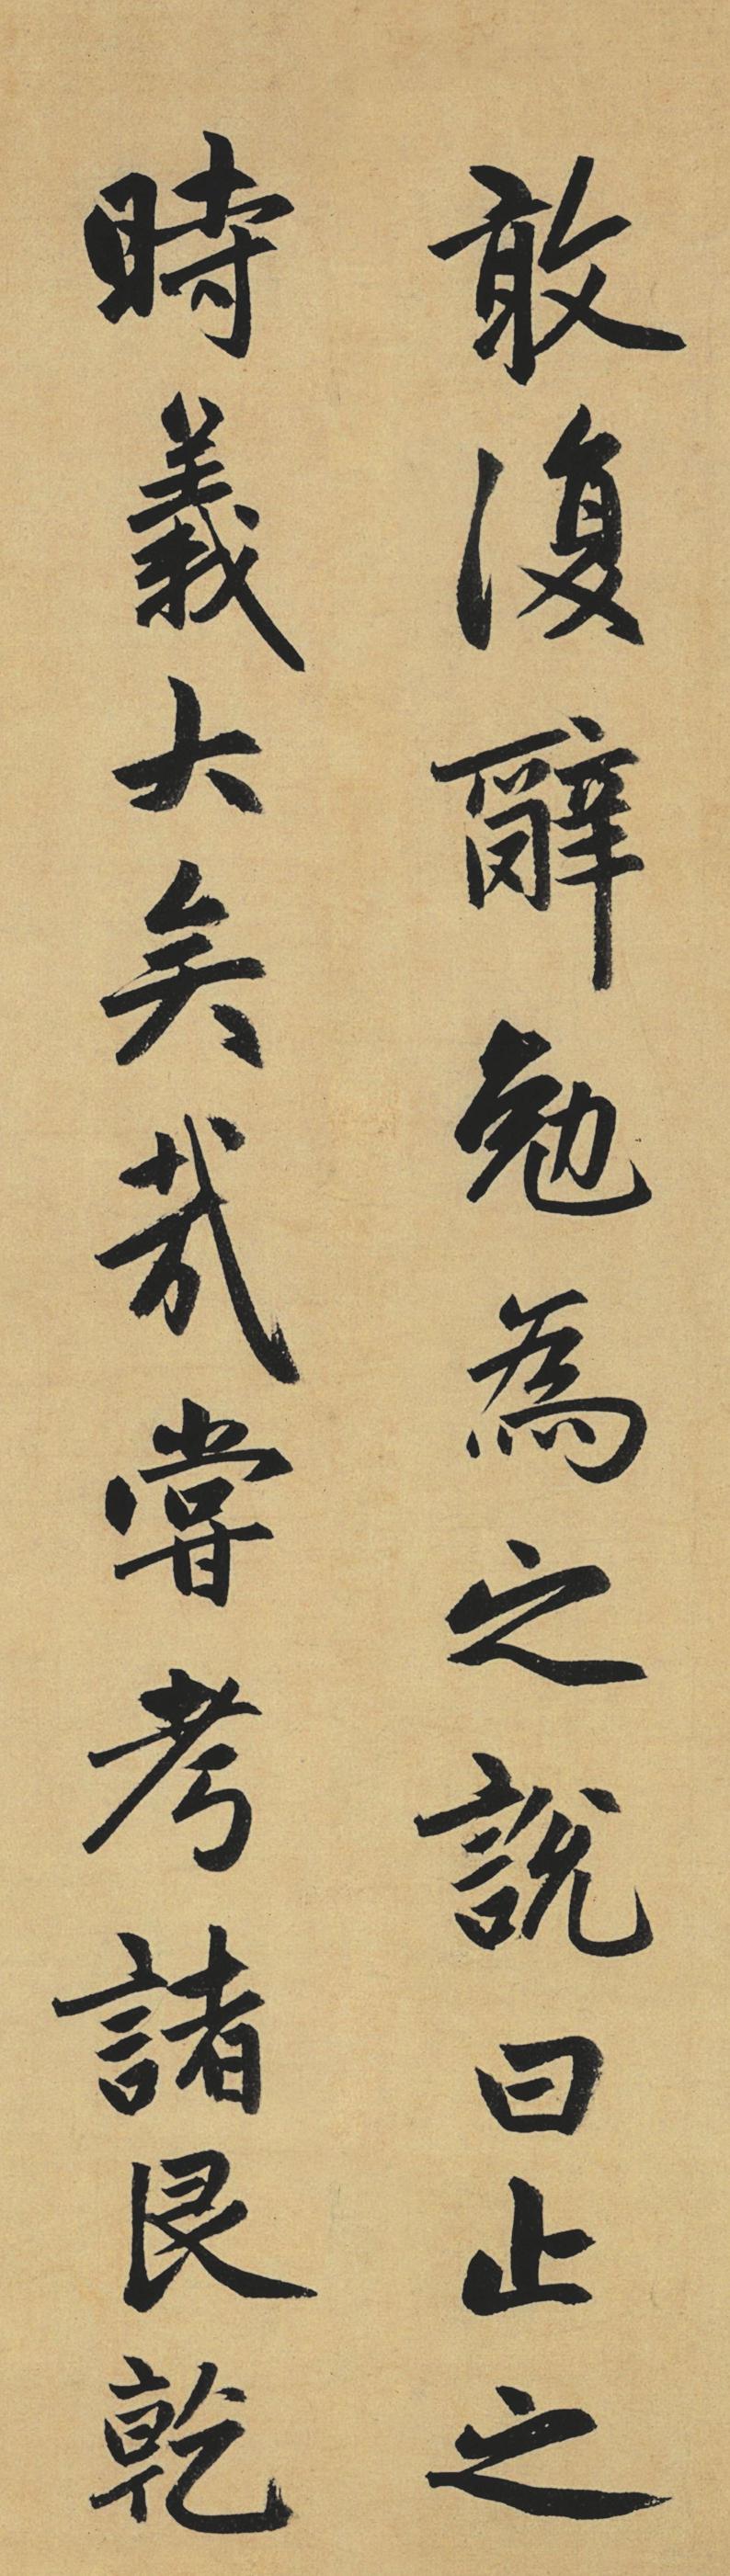 敢復辭勉為之說曰止之
時義大矣哉嘗考諸艮乾